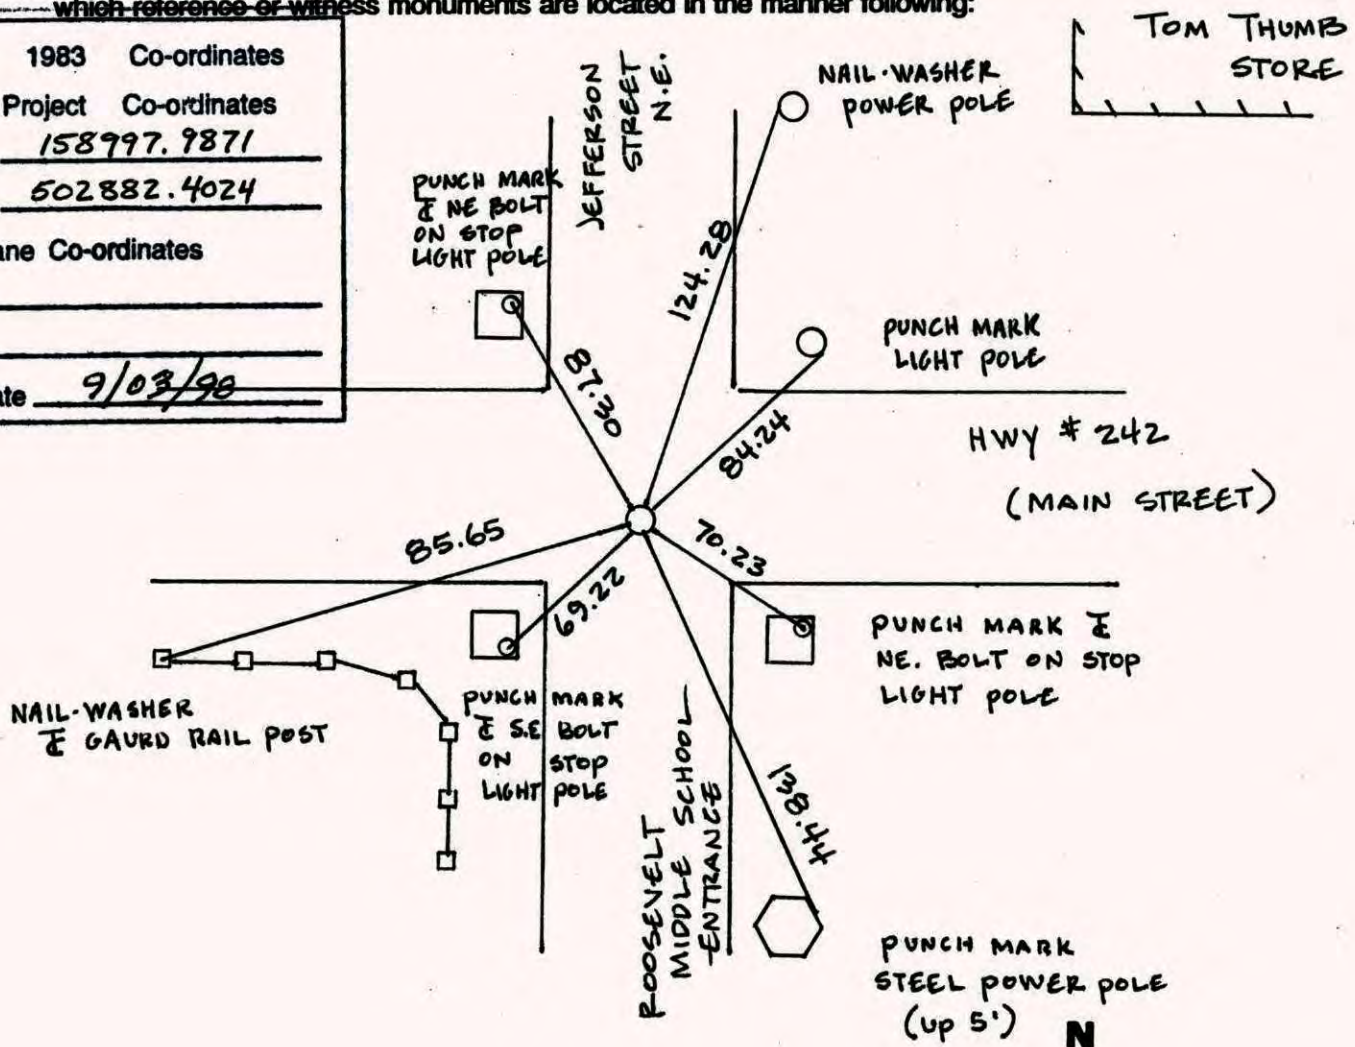 which reference or witness monuments are located in the manner following:
1983 Co-ordinates
Project Co-ordinates
158997.9871
502882.4024
ane Co-ordinates
ate 9/03/98
JEFFERSON
STREET
N.E.
NAIL-WASHER
POWER POLE
TOM THUMB
STORE
PUNCH MARK
℄ NE BOLT
ON STOP
LIGHT POLE
124.28
87.30
PUNCH MARK
LIGHT POLE
84.24
HWY # 242
(MAIN STREET)
85.65
70.23
69.22
NAIL-WASHER
℄ GAURD RAIL POST
PUNCH MARK
℄ S.E BOLT
ON STOP
LIGHT POLE
PUNCH MARK ℄
NE. BOLT ON STOP
LIGHT POLE
ROOSEVELT
MIDDLE SCHOOL
ENTRANCE
138.44
PUNCH MARK
STEEL POWER POLE
(UP 5')
N